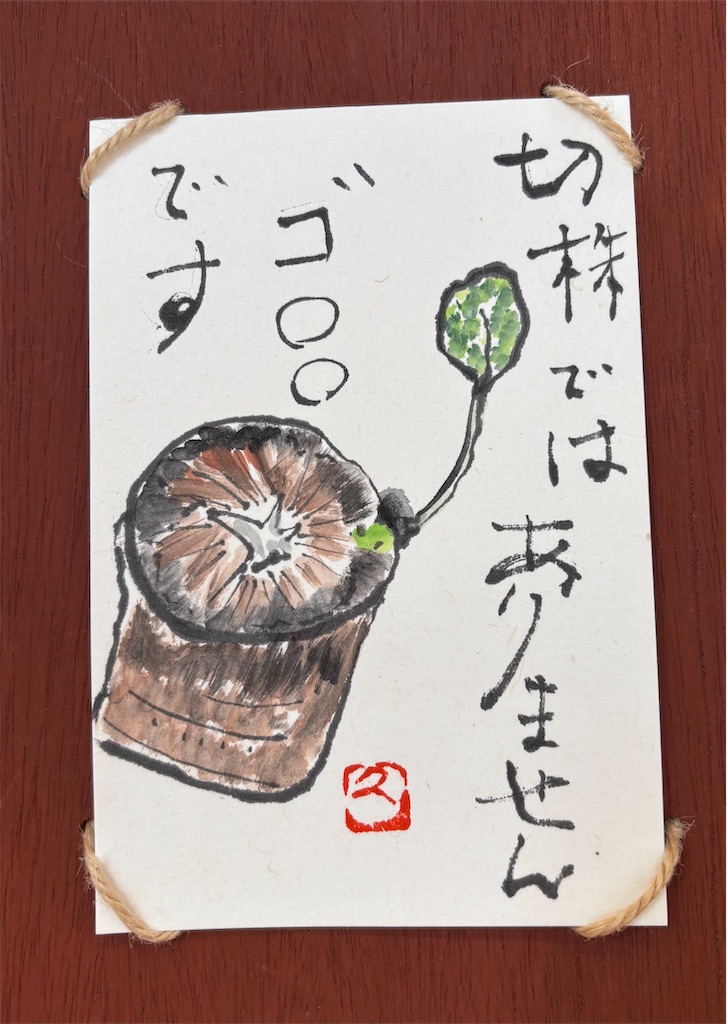 切株ではありません
ゴ〇〇
です
久